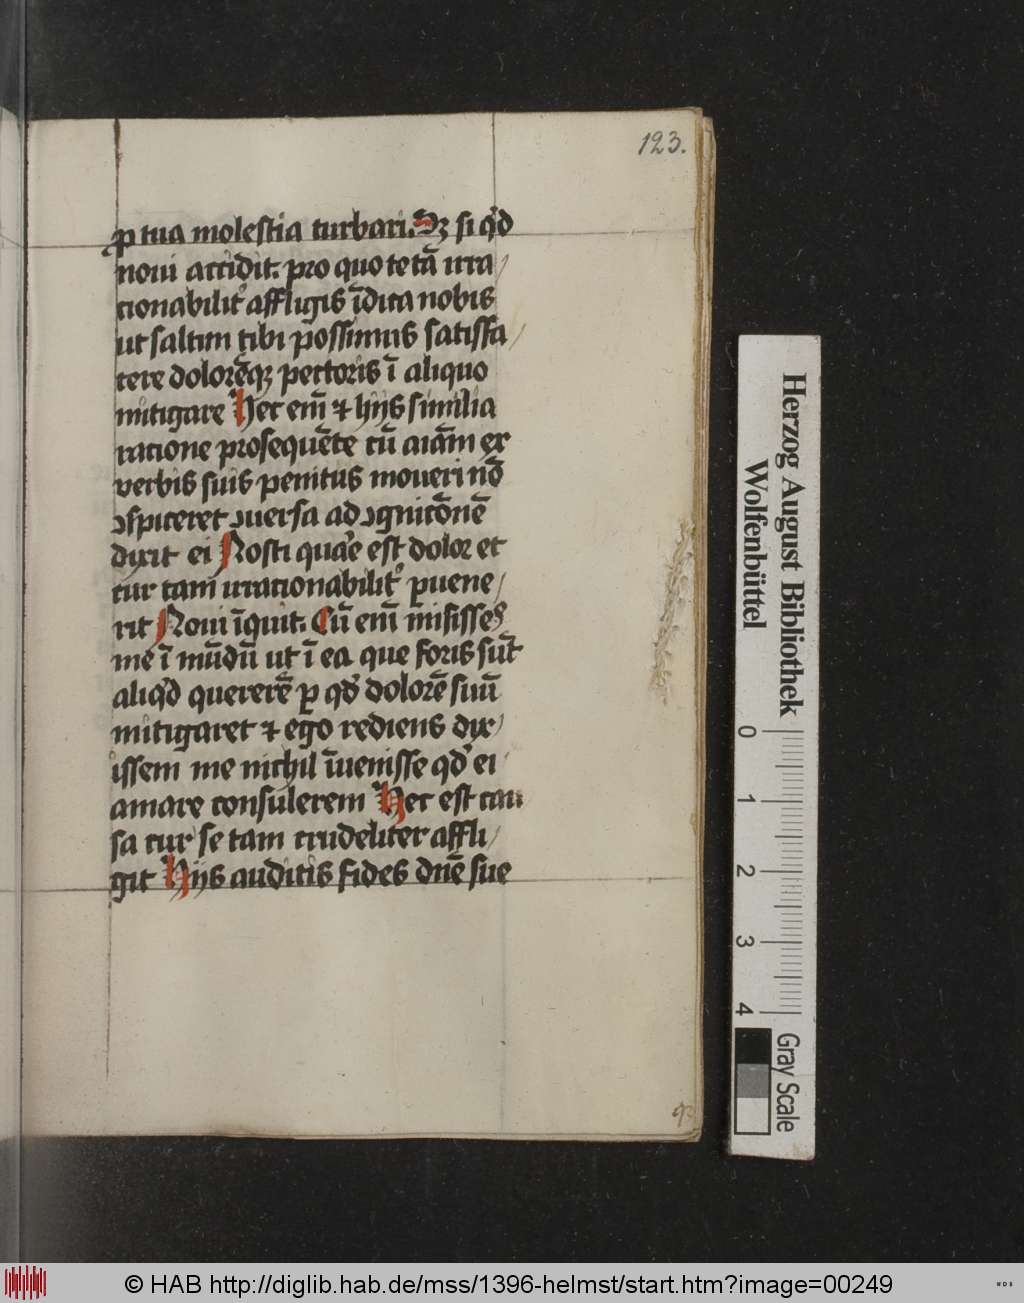 123.
ꝓ tua molestia turbari. Sꝫ si qͥd
noui accidit. pro quo te tā irra/
cionabilit᷑ affligis īdica nobis
ut saltim tibi possimus satisfa/
cere dolorēqꝫ pectoris ī aliquo
mitigare Hec em̄ ⁊ hijs similia
racione prosequēte cū aīam ex
verbis suis penitus moueri nō
ꝯspiceret ꝯuersa ad ꝯgnicōnē
dixit ei Nosti quaͤe est dolor et
cur tam irracionabilit᷑ ꝑuene/
rit Noui īquit. Cū em̄ misisses
me ī mūdū ut ī ea que foris sūt
aliqͥd quererē ꝑ qd̾ dolorē suū
mitigaret ⁊ ego rediens dix/
issem me nichil īuenisse qd̾ ei
amare consulerem Hec est cau
sa cur se tam crudeliter affli/
git Hijs auditis fides dn̄e sue
Herzog August Bibliothek
Wolfenbüttel
0 1 2 3 4
Gray Scale
© HAB http://diglib.hab.de/mss/1396-helmst/start.htm?image=00249
WDB